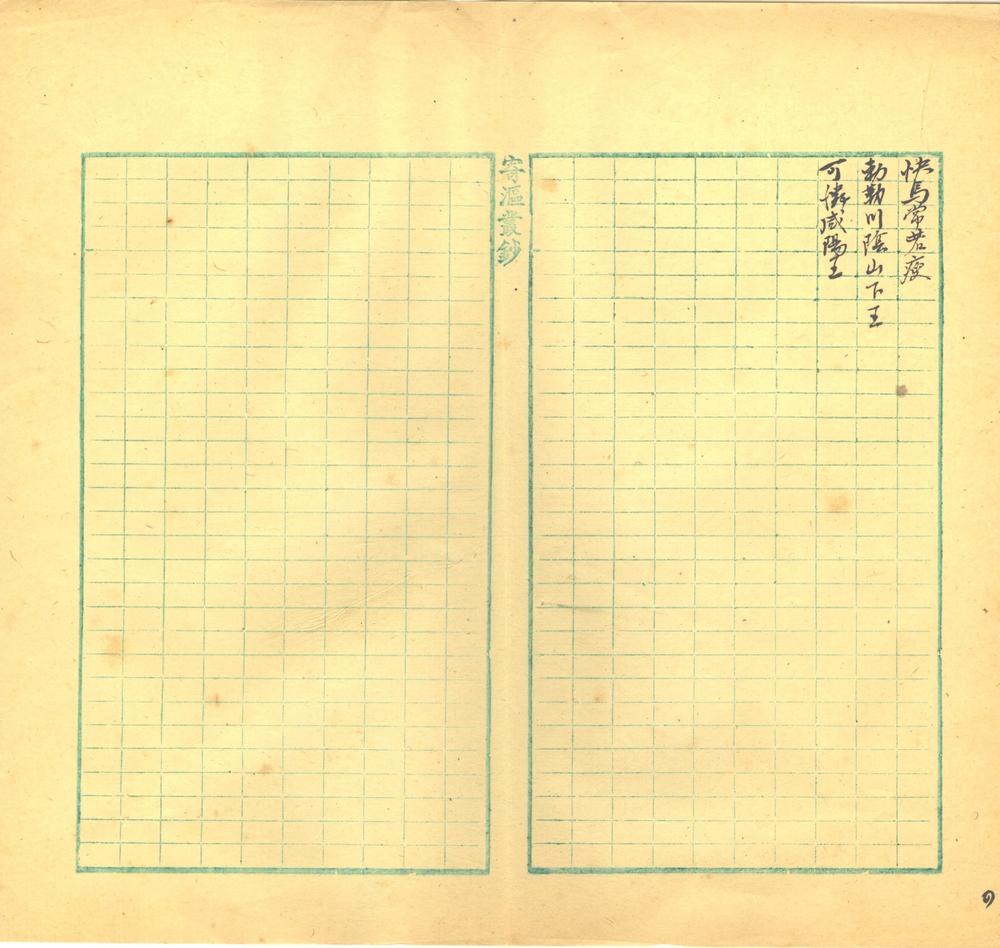 快馬常苦瘦
勅勒川陰山下王
可憐咸陽王
寄漚叢鈔